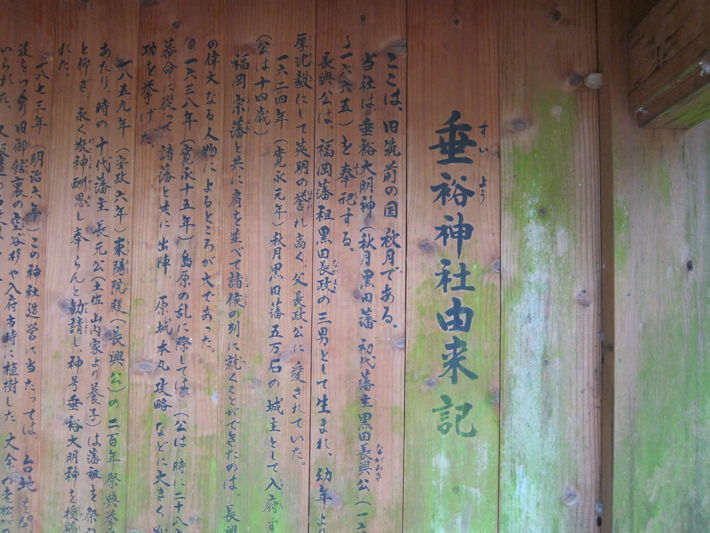 垂裕神社由来記
すい よう
ここは、旧筑前の国 秋月である。
当社は、垂裕大明神(秋月黒田藩 初代藩主黒田長興公(一六
ながおき
〜一六六五)を奉祀する。
長興公は、福岡藩祖黒田長政の三男として生まれ、幼年より
ながまさ
にして英明の誉れ高く、父長政公に愛されていた。
一六二四年(寛永元年)秋月黒田藩五万石の城主として入府す
(公は十四歳)
福岡宗藩と共に肩を並べて諸侯の列に就くことができたのは、長興
の偉大なる人物によるところが大であった。
一六三八年(寛永十五年)島原の乱に際しては、(公は時に二十八
幕命に従って諸藩と共に出陣、原城本丸攻略などに大きく
功を挙げ
一八五九年(安政六年)東陽院殿(長興公)の二百年祭典挙
あたり、時の十代藩主 長元公(土佐 山内家より養子)は藩祖を祭
と仰ぎ、永く敬神酬恩し奉らんと勧請し、神号垂裕大明神を授
れた。
一八七三年(明治六年)この神社造営に当たっては 台地を
道をつくり旧御館裏の 杉や入府当時に植樹した 大余の老松が
いられた。